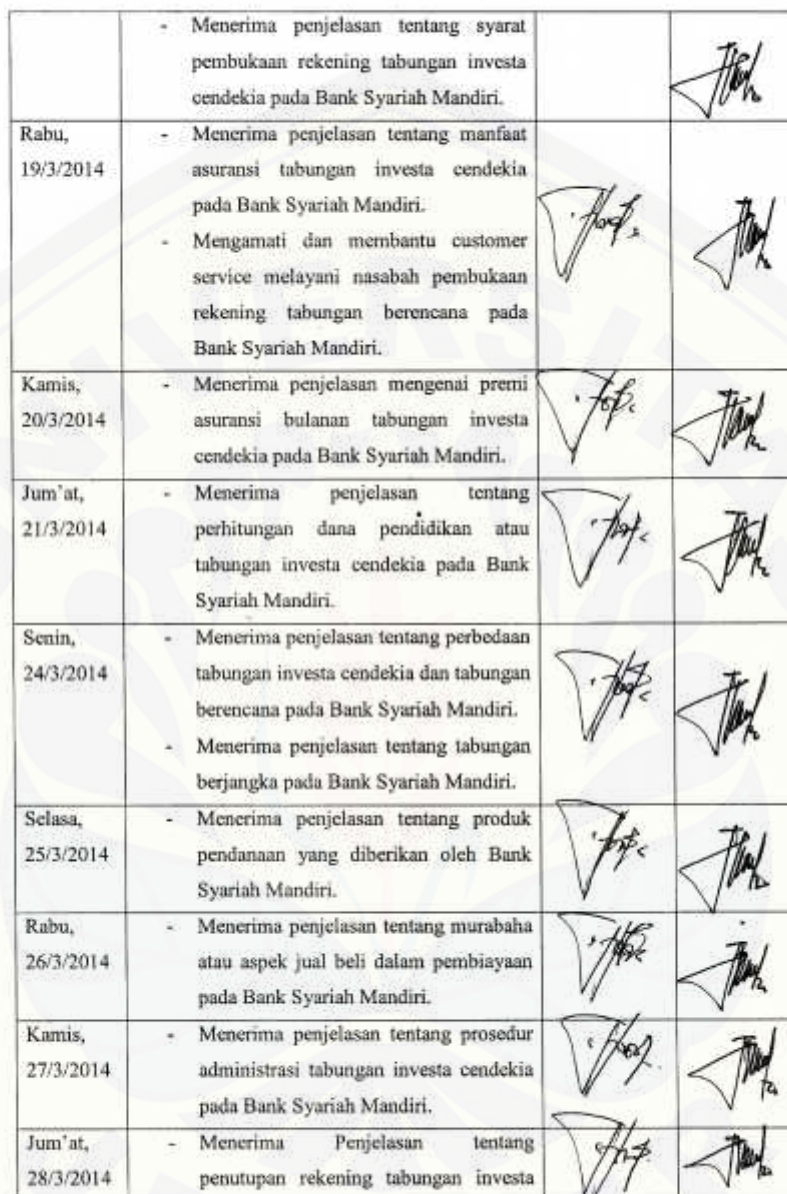 - Menerima penjelasan tentang syarat
pembukaan rekening tabungan investa
cendekia pada Bank Syariah Mandiri.
Rabu,
19/3/2014
- Menerima penjelasan tentang manfaat
asuransi tabungan investa cendekia
pada Bank Syariah Mandiri.
- Mengamati dan membantu customer
service melayani nasabah pembukaan
rekening tabungan berencana pada
Bank Syariah Mandiri.
Kamis,
20/3/2014
- Menerima penjelasan mengenai premi
asuransi bulanan tabungan investa
cendekia pada Bank Syariah Mandiri.
Jum'at,
21/3/2014
- Menerima penjelasan tentang
perhitungan dana pendidikan atau
tabungan investa cendekia pada Bank
Syariah Mandiri.
Senin,
24/3/2014
- Menerima penjelasan tentang perbedaan
tabungan investa cendekia dan tabungan
berencana pada Bank Syariah Mandiri.
- Menerima penjelasan tentang tabungan
berjangka pada Bank Syariah Mandiri.
Selasa,
25/3/2014
- Menerima penjelasan tentang produk
pendanaan yang diberikan oleh Bank
Syariah Mandiri.
Rabu,
26/3/2014
- Menerima penjelasan tentang murabaha
atau aspek jual beli dalam pembiayaan
pada Bank Syariah Mandiri.
Kamis,
27/3/2014
- Menerima penjelasan tentang prosedur
administrasi tabungan investa cendekia
pada Bank Syariah Mandiri.
Jum'at,
28/3/2014
- Menerima Penjelasan tentang
penutupan rekening tabungan investa